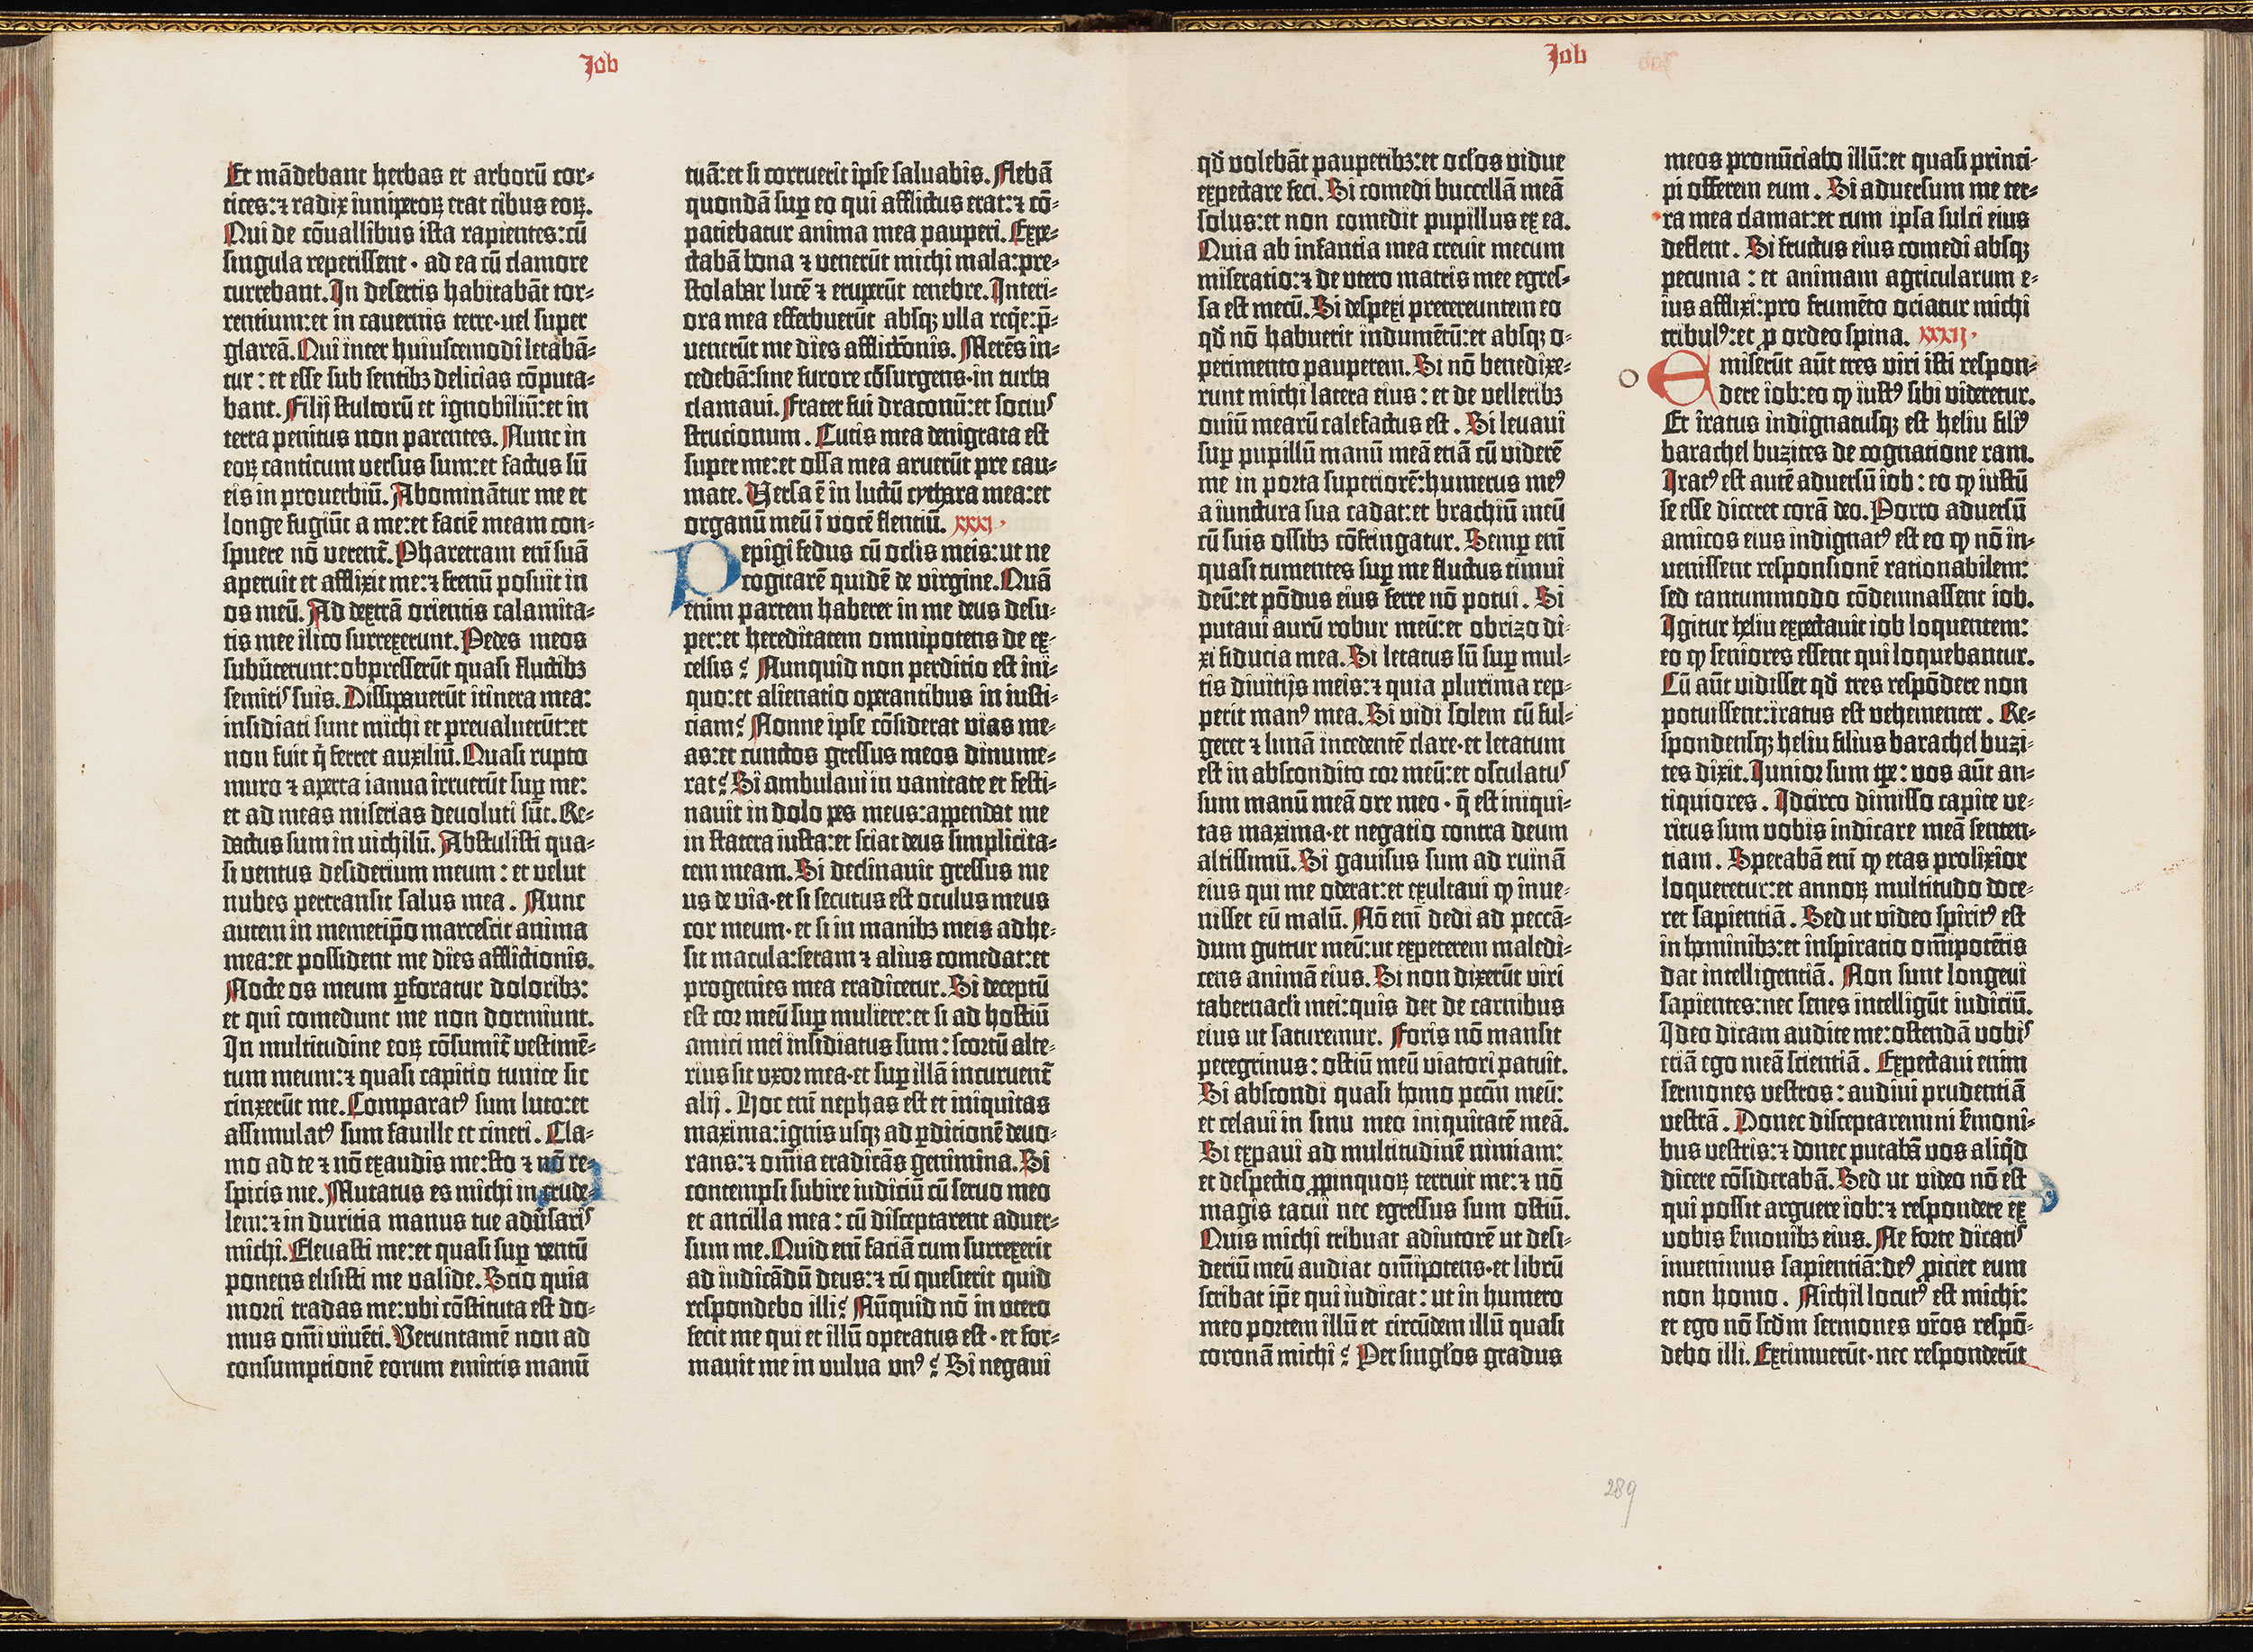 Job
Et mādebant herbas et arborū cor-
tices: ⁊ radix iuniperoꝝ erat cibus eoꝝ.
Qui de cōuallibus ista rapientes: cū
singula reperissent · ad ea cū clamore
currebant. In desertis habitabāt tor-
rentium: et in cauernis terre · vel super
glareā. Qui inter huiuscemodi letabā-
tur : et esse sub sentibꝫ delicias cōputa-
bant. Filij stultorū et ignobiliū: et in
terra penitus non parentes. Nunc in
eoꝝ canticum versus sum: et factus sū
eis in prouerbiū. Abominātur me et
longe fugiūt a me: et faciē meam con-
spuere nō verent̄. Pharetram eni suā
aperuit et afflixit me: ⁊ frenū posuit in
os meū. Ad dextrā orientis calamita-
tis mee ilico surrexerunt. Pedes meos
subuterunt: obpresserūt quasi fluctibꝫ
semitis suis. Dissipauerūt itinera mea:
insidiati sunt michi et preualuerūt: et
non fuit q̇ ferret auxiliū. Quasi rupto
muro ⁊ aperta ianua irruerūt suꝑ me:
et ad meas miserias deuoluti sūt. Re-
dactus sum in nichilū. Abstulisti qua-
si ventus desiderium meum : et velut
nubes pertransit salus mea . Nunc
autem in memetip̄o marcescit anima
mea: et possident me dies afflictionis.
Nocte os meum ꝑforatur doloribꝫ:
et qui comedunt me non dormiunt.
In multitudine eoꝝ cōsumit̄ vestimē-
tum meum: ⁊ quasi capitio tunice sic
cinxerūt me. Comparatꝰ sum luto: et
assimulatꝰ sum fauille et cineri . Cla-
mo ad te ⁊ nō exaudis me: sto ⁊ nō re-
spicis me. Mutatus es michi in crude-
lem: ⁊ in duritia manus tue adūsaris
michi. Eleuasti me: et quasi suꝑ ventū
ponens elisisti me valide. Scio quia
morti tradas me: vbi cōstituta est do-
mus om̄i viuēti. Veruntamē non ad
consumptionē eorum emittis manū
tuā: et si corruerit ipse saluabis. Flebā
quondā suꝑ eo qui afflictus erat: ⁊ cō-
patiebatur anima mea pauperi. Expe-
ctabā bona ⁊ venerūt michi mala: pre-
stolabar lucē ⁊ eruperūt tenebre. Interi-
ora mea efferbuerūt absqꝫ vlla req̄e: p̄-
uenerūt me dies afflictōnis. Merēs in-
cedebā: sine furore cōsurgens · in turba
clamaui. Frater fui draconū: et socius
strucionum . Cutis mea denigrata est
super me: et ossa mea aruerūt pre cau-
mate. Versa ē in luctū cythara mea: et
organū meū ī vocē flentiū. xxxi ·
Pepigi fedus cū oclis meis: ut ne
cogitarē quidē de virgine. Quā
enim partem haberet in me deus desu-
per: et hereditatem omnipotens de ex-
celsis ? Nunquid non perditio est ini-
quo: et alienatio operantibus in iusti-
ciam? Nonne ipse cōsiderat vias me-
as: et cunctos gressus meos dinume-
rat? Si ambulaui in vanitate et festi-
nauit in dolo pes meus: appendat me
in statera iusta: et sciat deus simplicita-
tem meam. Si declinauit gressus me
us de via · et si secutus est oculus meus
cor meum · et si in manibꝫ meis adhe-
sit macula: seram ⁊ alius comedat: et
progenies mea eradicetur. Si deceptū
est cor meū suꝑ muliere: et si ad hostiū
amici mei insidiatus sum : scortū alte-
rius sit vxor mea · et suꝑ illā incuruent̄
alij . Hoc eni nephas est et iniquitas
maxima: ignis usqꝫ ad ꝑditionē deuo-
rans: ⁊ om̄ia eradicās genimina. Si
contempsi subire iudiciū cū seruo meo
et ancilla mea : cū disceptarent aduer-
sum me. Quid eni faciā cum surrexerit
ad iudicādū deus: ⁊ cū quesierit quid
respondebo illi? Nūquid nō in vtero
fecit me qui et illū operatus est · et for-
mauit me in vulua vnꝰ ? Si negaui
Job
qd̄ volebāt pauperibꝫ: et oclos vidue
expectare feci. Si comedi buccellā meā
solus: et non comedit pupillus ex ea.
Quia ab infantia mea creuit mecum
miseratio: ⁊ de vtero matris mee egres-
sa est mecū. Si despexi pretereuntem eo
qd̄ nō habuerit indumētū: et absqꝫ o-
perimento pauperem. Si nō benedixe-
runt michi latera eius : et de velleribꝫ
ouiū mearū calefactus est . Si leuaui
suꝑ pupillū manū meā etiā cū viderē
me in porta superiorē: humerus meꝰ
a iunctura sua cadat: et brachiū meū
cū suis ossibꝫ cōfringatur. Semꝑ eni
quasi tumentes suꝑ me fluctus timui
deū: et pōdus eius ferre nō potui . Si
putaui aurū robur meū: et obrizo di-
xi fiducia mea. Si letatus sū suꝑ mul-
tis diuitijs meis: ⁊ quia plurima rep-
perit manꝰ mea. Si vidi solem cū ful-
geret ⁊ lunā incedentē clare · et letatum
est in abscondito cor meū: et osculatus
sum manū meā ore meo · q̄ est iniqui-
tas maxima · et negatio contra deum
altissimū. Si gauisus sum ad ruinā
eius qui me oderat: et exultaui ꝙ inue-
nisset eū malū. Nō eni dedi ad peccā-
dum guttur meū: ut expeterem maledi-
cens animā eius. Si non dixerūt viri
tabernacli mei: quis det de carnibus
eius ut saturemur. Foris nō mansit
peregrinus : ostiū meū viatori patuit.
Si abscondi quasi homo pctm̄ meū:
et celaui in sinu meo iniquitatē meā.
Si expaui ad multitudinē nimiam:
et despectio ꝓpinquoꝝ terruit me: ⁊ nō
magis tacui nec egressus sum ostiū.
Quis michi tribuat adiutorē ut desi-
deriū meū audiat om̄ipotens · et librū
scribat ip̄e qui iudicat : ut in humero
meo portem illū et circūdem illū quasi
coronā michi ? Per singlos gradus
meos pronūciabo illū: et quasi princi-
pi offerem eum . Si aduersum me ter-
ra mea clamat: et cum ipsa sulci eius
deflent . Si fructus eius comedi absqꝫ
pecunia : et animam agricularum e-
ius afflixi: pro frumēto oriatur michi
tribulꝰ: et ꝓ ordeo spina. xxxij ·
Emiserūt aūt tres viri isti respon-
dere iob: eo ꝙ iustꝰ sibi videretur.
Et iratus indignatusqꝫ est heliu filiꝰ
barachel buzites de cognatione ram.
Iratꝰ est autē aduersū iob : eo ꝙ iustū
se esse diceret corā deo. Porro aduersū
amicos eius indignatꝰ est eo ꝙ nō in-
uenissent responsionē rationabilem:
sed tantummodo cōdemnassent iob.
Igitur heliu expectauit iob loquentem:
eo ꝙ seniores essent qui loquebantur.
Cū aūt vidisset qd̄ tres respōdere non
potuissent: iratus est vehementer . Re-
spondensqꝫ heliu filius barachel buzi-
tes dixit. Iunior sum tꝑe : vos aūt an-
tiquiores . Idcirco dimisso capite ve-
ritus sum vobis indicare meā senten-
tiam . Sperabā eni ꝙ etas prolixior
loqueretur: et annoꝝ multitudo doce-
ret sapientiā . Sed ut video spiritꝰ est
in hominibꝫ: et inspiratio om̄ipotētis
dat intelligentiā. Non sunt longeui
sapientes: nec senes intelligūt iudiciū.
Ideo dicam audite me: ostendā vobis
etiā ego meā scientiā . Expectaui enim
sermones vestros : audiui prudentiā
vestrā . Donec disceptaremini s̄moni-
bus vestris: ⁊ donec putabā vos aliq̇d
dicere cōsiderabā. Sed ut video nō est
qui possit arguere iob: ⁊ respondere ex
vobis s̄monibꝫ eius. Ne forte dicatis
inuenimus sapientiā: deꝰ ꝓiciet eum
non homo . Nichil locutꝰ est michi:
et ego nō scd̄m sermones vr̄os respō-
debo illi. Extimuerūt · nec responderūt
289